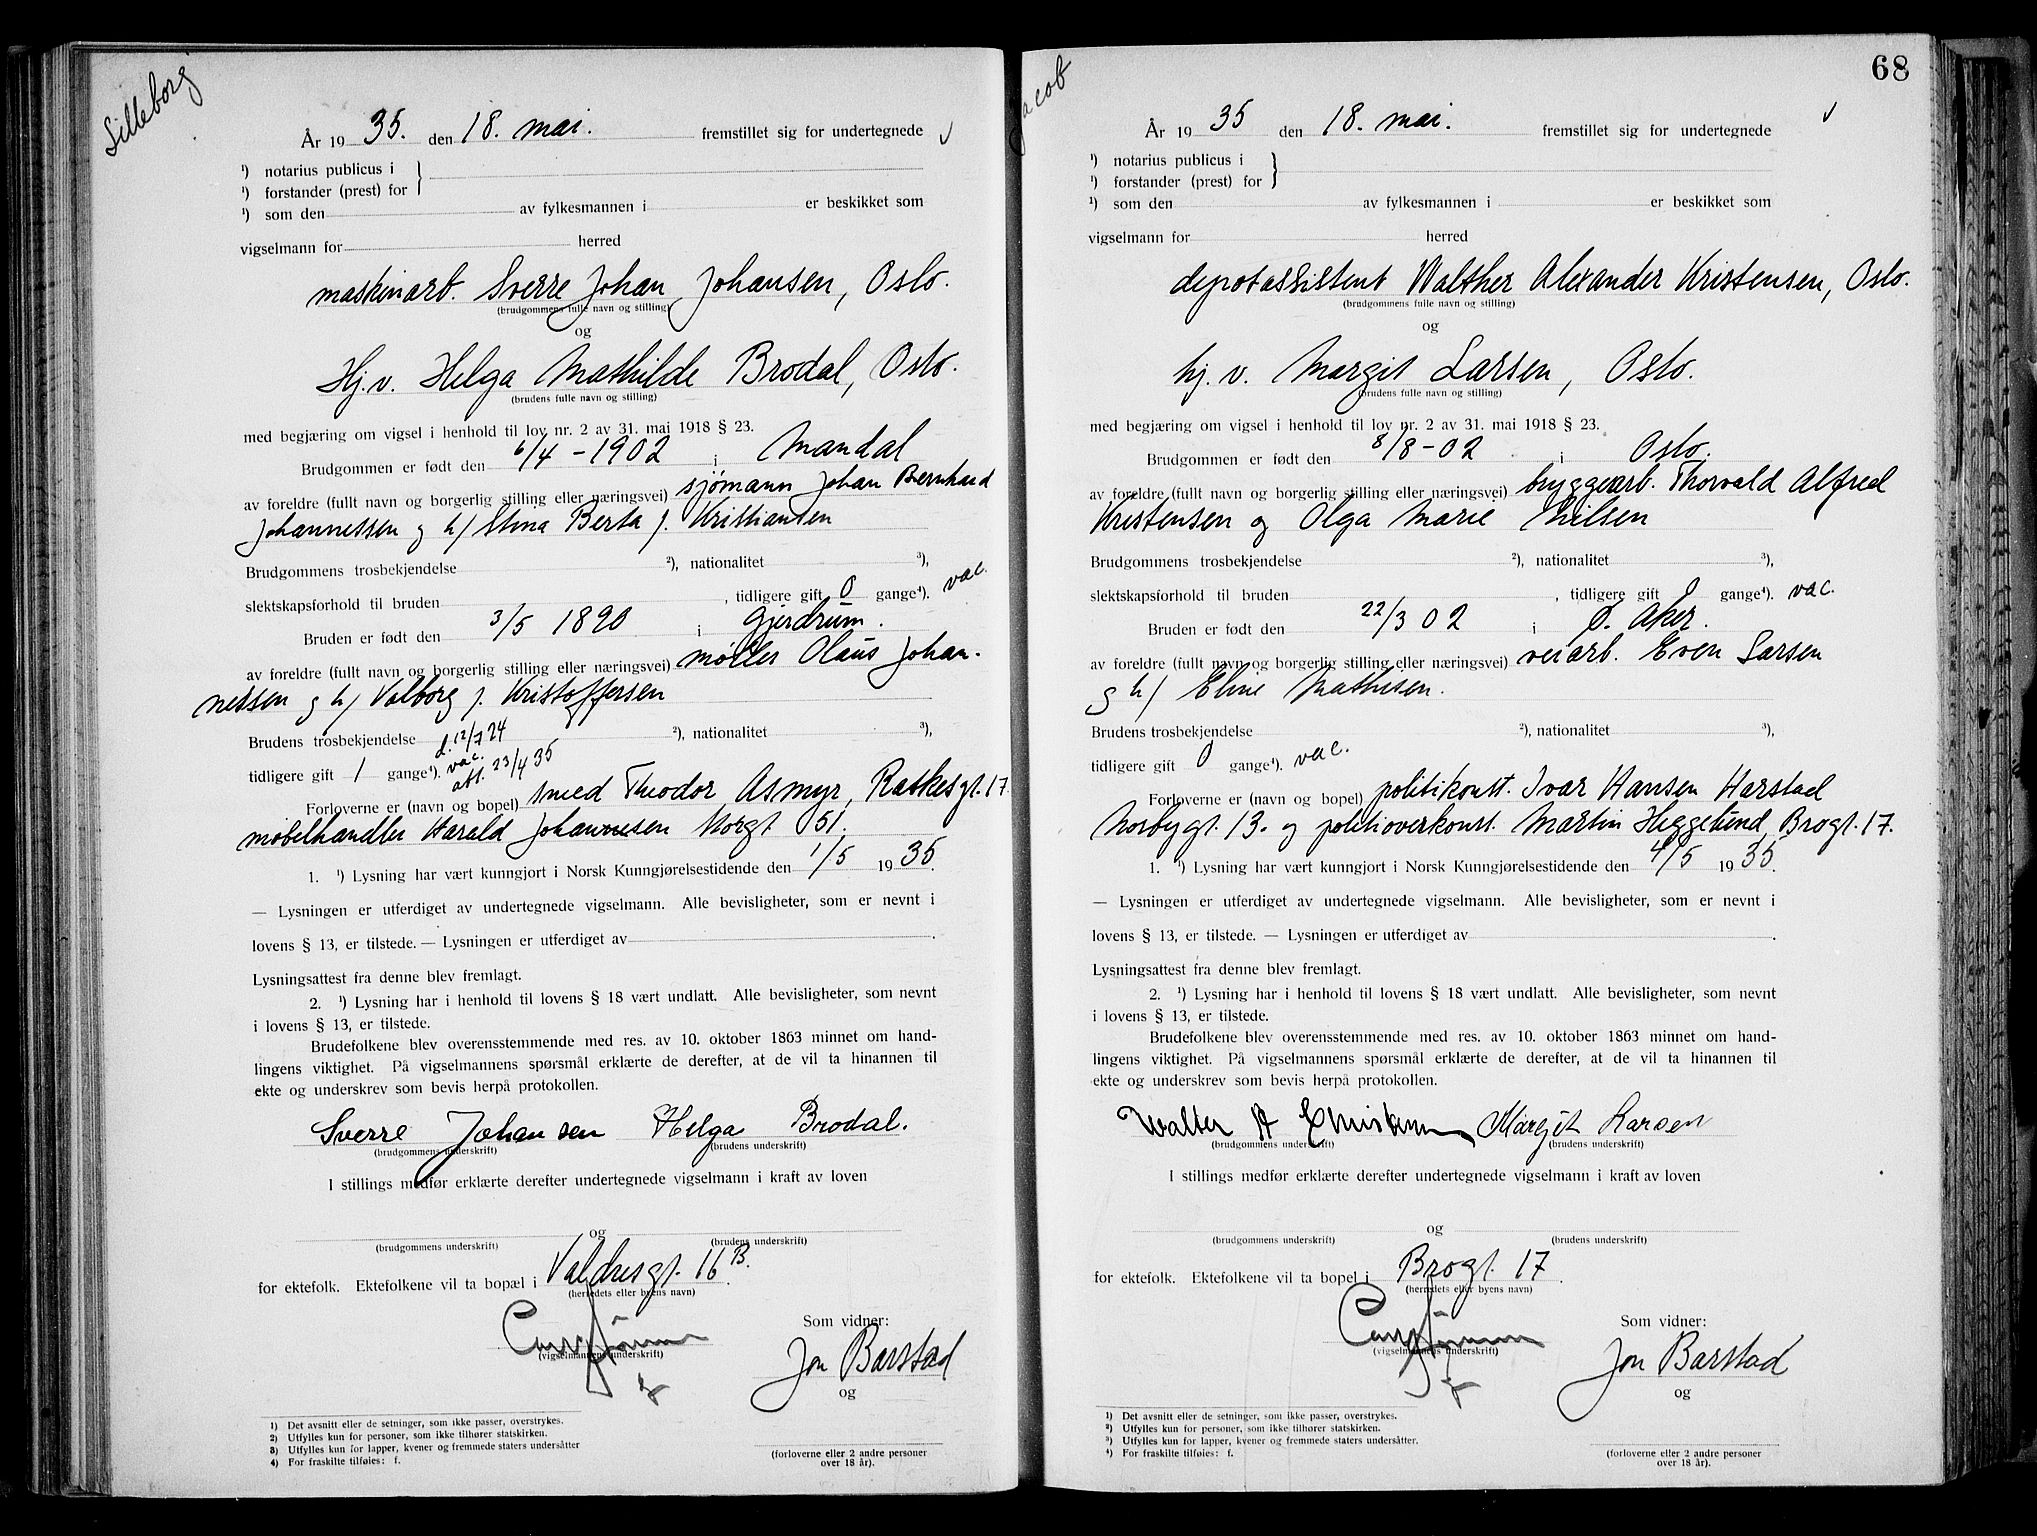 Lilleborg
År 19 35. den 18. mai. fremstillet sig for undertegnede
¹) notarius publicus i
¹) forstander (prest) for
¹) som den av fylkesmannen i er beskikket som
vigselmann for herred
maskinarb. Sverre Johan Johansen, Oslo.
(brudgommens fulle navn og stilling)
og
Hj.v. Helga Mathilde Brodal, Oslo.
(brudens fulle navn og stilling)
med begjæring om vigsel i henhold til lov nr. 2 av 31. mai 1918 § 23.
Brudgommen er født den 6/4 - 1902 i Mandal
av foreldre (fullt navn og borgerlig stilling eller næringsvei) sjømann Johan Bernhard
Johannessen og h/ Stina Berta f. Kristiansen
Brudgommens trosbekjendelse ²), nationalitet ³),
slektskapsforhold til bruden , tidligere gift 0 gange⁴). vac.
Bruden er født den 3/5 1890 i Gjerdrum.
av foreldre (fullt navn og borgerlig stilling eller næringsvei) møller Olaus Johan-
nessen og h/ Valborg f. Kristoffersen
Brudens trosbekjendelse d. 12/7 24 ²), nationalitet ³),
tidligere gift 1 gange⁴). vac. att. 23/4 35
Forloverne er (navn og bopel) smed Theodor Asmyr, Ratkesgt. 17
møbelhandler Harald Johannesen Storgt 51.
1. ¹) Lysning har vært kunngjort i Norsk Kunngjørelsestidende den 1/5 1935.
— Lysningen er utferdiget av undertegnede vigselmann. Alle bevisligheter, som er nevnt i
lovens § 13, er tilstede. — Lysningen er utferdiget av .
Lysningsattest fra denne blev fremlagt.
2. ¹) Lysning har i henhold til lovens § 18 vært undlatt. Alle bevisligheter, som nevnt
i lovens § 13, er tilstede.
Brudefolkene blev overensstemmende med res. av 10. oktober 1863 minnet om hand-
lingens viktighet. På vigselmannens spørsmål erklærte de derefter, at de vil ta hinannen til
ekte og underskrev som bevis herpå protokollen.
Sverre Johansen Helga Brodal.
(brudgommens underskrift) (brudens underskrift)
I stillings medfør erklærte derefter undertegnede vigselmann i kraft av loven
og
(brudgommens underskrift) (brudens underskrift)
for ektefolk. Ektefolkene vil ta bopæl i Valdresgt. 16 B.
(herredets eller byens navn)
Som vidner:
(vigselmannens underskrift)
Jon Barstad
og
1) Det avsnitt eller de setninger, som ikke passer, overstrykes.
2) Utfylles kun for personer, som ikke tilhører statskirken.
3) Utfylles kun for lapper, kvener og fremmede staters undersåtter
4) For fraskilte tilføies: f.
(forloverne eller 2 andre personer
over 18 år).
68
Jacob
År 19 35 den 18. mai. fremstillet sig for undertegnede
¹) notarius publicus i
¹) forstander (prest) for
¹) som den av fylkesmannen i er beskikket som
vigselmann for herred
depotassistent Walther Alexander Kristensen, Oslo.
(brudgommens fulle navn og stilling)
og
hj. v. Margit Larsen, Oslo.
(brudens fulle navn og stilling)
med begjæring om vigsel i henhold til lov nr. 2 av 31. mai 1918 § 23.
Brudgommen er født den 8/8 - 02 i Oslo.
av foreldre (fullt navn og borgerlig stilling eller næringsvei) bryggearb. Thorvald Alfred
Kristensen og Olga Marie Nilsen
Brudgommens trosbekjendelse ²), nationalitet ³),
slektskapsforhold til bruden , tidligere gift 0 gange⁴). vac.
Bruden er født den 22/3 02 i Ø. Aker.
av foreldre (fullt navn og borgerlig stilling eller næringsvei) veiarb. Even Larsen
og h/ Eline Mathisen.
Brudens trosbekjendelse ²), nationalitet ³),
tidligere gift 0 gange⁴). vac.
Forloverne er (navn og bopel) politikonst. Ivar Hansen Harstad
Norbygt. 13. og politioverkonst. Martin Heggelund, Brogt. 17.
1. ¹) Lysning har vært kunngjort i Norsk Kunngjørelsestidende den 4/5 1935.
— Lysningen er utferdiget av undertegnede vigselmann. Alle bevisligheter, som er nevnt i
lovens § 13, er tilstede. — Lysningen er utferdiget av .
Lysningsattest fra denne blev fremlagt.
2. ¹) Lysning har i henhold til lovens § 18 vært undlatt. Alle bevisligheter, som nevnt
i lovens § 13, er tilstede.
Brudefolkene blev overensstemmende med res. av 10. oktober 1863 minnet om hand-
lingens viktighet. På vigselmannens spørsmål erklærte de derefter, at de vil ta hinannen til
ekte og underskrev som bevis herpå protokollen.
Walter A Christensen Margit Larsen
(brudgommens underskrift) (brudens underskrift)
I stillings medfør erklærte derefter undertegnede vigselmann i kraft av loven
og
(brudgommens underskrift) (brudens underskrift)
for ektefolk. Ektefolkene vil ta bopel i Brogt. 17
(herredets eller byens navn)
Som vidner:
(vigselmannens underskrift)
Jon Barstad
og
1) Det avsnitt eller de setninger, som ikke passer, overstrykes.
2) Utfylles kun for personer, som ikke tilhører statskirken.
3) Utfylles kun for lapper, kvener og fremmede staters undersåtter.
4) For fraskilte tilføies: f.
(forloverne eller 2 andre personer
over 18 år).